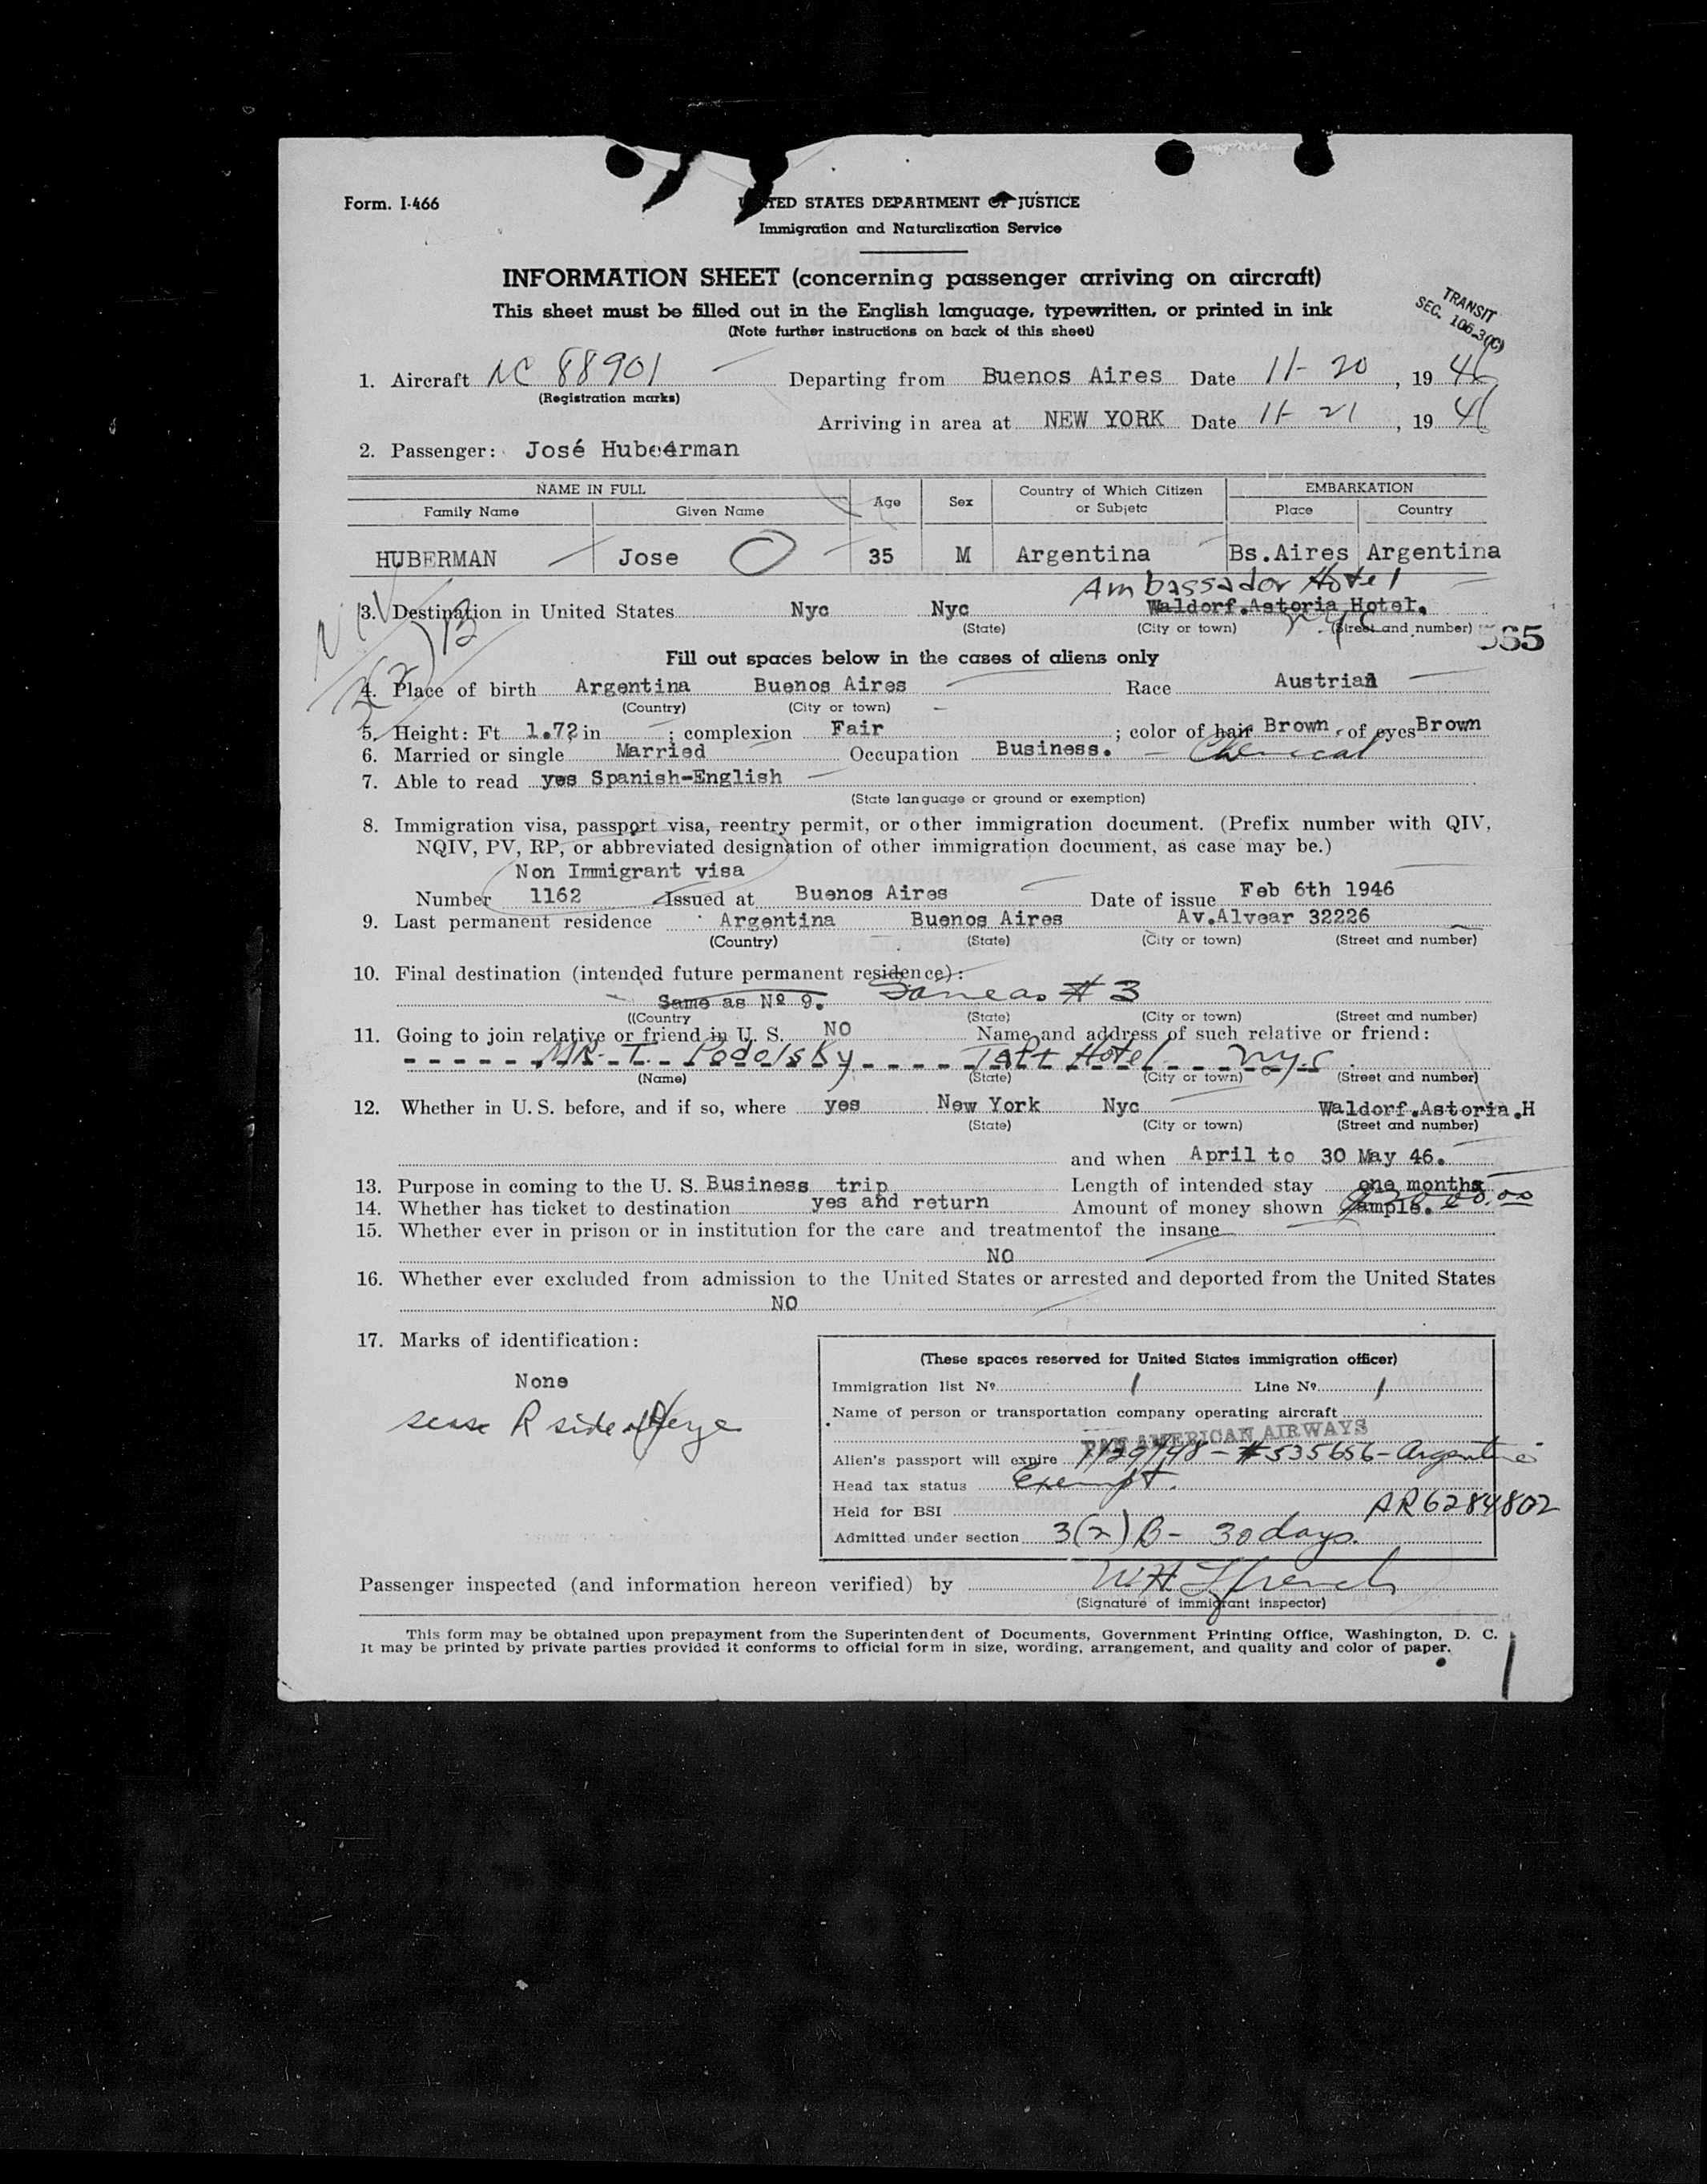 Form. I-466
UNITED STATES DEPARTMENT OF JUSTICE
Immigration and Naturalization Service
INFORMATION SHEET (concerning passenger arriving on aircraft)
This sheet must be filled out in the English language, typewritten, or printed in ink
(Note further instructions on back of this sheet)
TRANSIT
SEC. 106.3(C)
1. Aircraft NC 88901 Departing from Buenos Aires Date 11-20, 1946
(Registration marks)
Arriving in area at NEW YORK Date 11-21, 1946
2. Passenger: José Huberman
NAME IN FULL Age Sex Country of Which Citizen or Subjetc EMBARKATION
Family Name Given Name Place Country
HUBERMAN Jose 35 M Argentina Bs.Aires Argentina
Ambassador Hotel
3. Destination in United States Nyc Nyc Waldorf.Astoria Hotel.
(State) (City or town) (Street and number)
nyc
565
NIV
3(2)B
Fill out spaces below in the cases of aliens only
4. Place of birth Argentina Buenos Aires Race Austrian
(Country) (City or town)
5. Height: Ft 1.72 in ; complexion Fair ; color of hair Brown, of eyes Brown
6. Married or single Married Occupation Business. - Chemical
7. Able to read yes Spanish-English
(State language or ground or exemption)
8. Immigration visa, passport visa, reentry permit, or other immigration document. (Prefix number with QIV,
NQIV, PV, RP, or abbreviated designation of other immigration document, as case may be.)
Non Immigrant visa
Number 1162 Issued at Buenos Aires Date of issue Feb 6th 1946
9. Last permanent residence Argentina Buenos Aires Av.Alvear 32226
(Country) (State) (City or town) (Street and number)
10. Final destination (intended future permanent residence):
Same as Nº 9. Same as # 3
((Country (State) (City or town) (Street and number)
11. Going to join relative or friend in U. S. NO Name and address of such relative or friend:
MR. I. Podolsky Taft Hotel nyc
(Name) (State) (City or town) (Street and number)
12. Whether in U. S. before, and if so, where yes New York Nyc Waldorf.Astoria.H
(State) (City or town) (Street and number)
and when April to 30 May 46.
13. Purpose in coming to the U. S. Business trip Length of intended stay one months
14. Whether has ticket to destination yes and return Amount of money shown ample.
15. Whether ever in prison or in institution for the care and treatmentof the insane
NO
16. Whether ever excluded from admission to the United States or arrested and deported from the United States
NO
17. Marks of identification:
None
R side of eye
(These spaces reserved for United States immigration officer)
Immigration list Nº 1 Line Nº 1
Name of person or transportation company operating aircraft
PAN AMERICAN AIRWAYS
Alien's passport will expire 1/29/48 - #535656 - Argentine
Head tax status Exempt.
Held for BSI AR6284802
Admitted under section 3(2)B - 30 days.
Passenger inspected (and information hereon verified) by W H French
(Signature of immigrant inspector)
This form may be obtained upon prepayment from the Superintendent of Documents, Government Printing Office, Washington, D. C.
It may be printed by private parties provided it conforms to official form in size, wording, arrangement, and quality and color of paper.